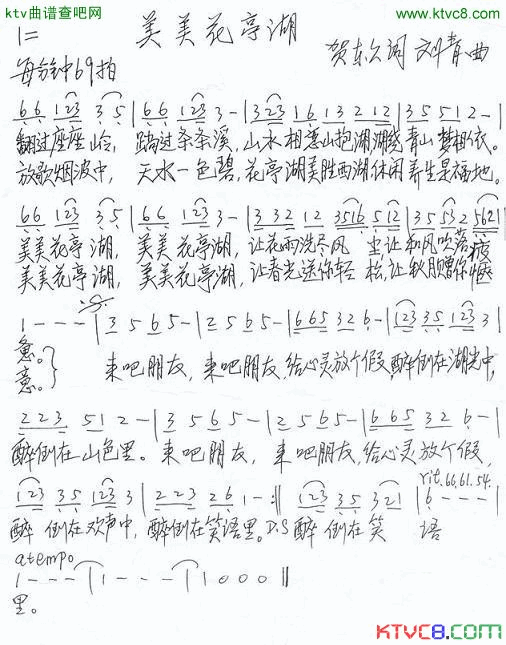 ktv曲谱查吧网
www.ktvc8.com
1= 美美花亭湖
每分钟69拍 贺东久词 刘青曲
6 6 1 2 3 3 5 | 6 6 1 2 3 3 - | 3 3 2 3 1 6 1 3 2 1 2 | 3 5 5 1 2 - |
翻过座座山岭, 踏过条条溪, 山水相恋山抱湖湖绕青山梦相依。
放歌烟波中, 天水一色碧, 花亭湖美胜西湖休闲养生是福地。
6 6 1 2 3 3 5 | 6 6 1 2 3 3 - | 3 3 2 1 2 3 5 1 6 5 1 2 | 3 5 5 3 2 5 6 2 1 |
美美花亭湖, 美美花亭湖, 让花雨洗尽风 尘让和风吹落疲
美美花亭湖, 美美花亭湖, 让春光送你轻 松, 让秋月赠你惬
1 - - - | 3 5 6 5 - | 2 5 6 5 - | 6 6 5 3 2 6 - | 1 2 3 3 5 1 2 3 3 |
惫。
意。 来吧朋友, 来吧朋友, 给心灵放个假, 醉倒在湖光中,
2 2 3 5 1 2 - | 3 5 6 5 - | 2 5 6 5 - | 6 6 5 3 2 6 - |
醉倒在山色里。 来吧朋友, 来吧朋友, 给心灵放个假,
rit. 66.61.54.
1 2 3 3 5 1 2 3 3 | 2 2 3 2 6 1 - :|| 1 2 3 3 5 3 2 1 | 6 - - - |
醉倒在欢声中, 醉倒在笑语里。 D.S 醉倒在笑 语
a tempo
1 - - - | 1 - - - | 1 0 0 0 ||
里。
KTVC8.COM